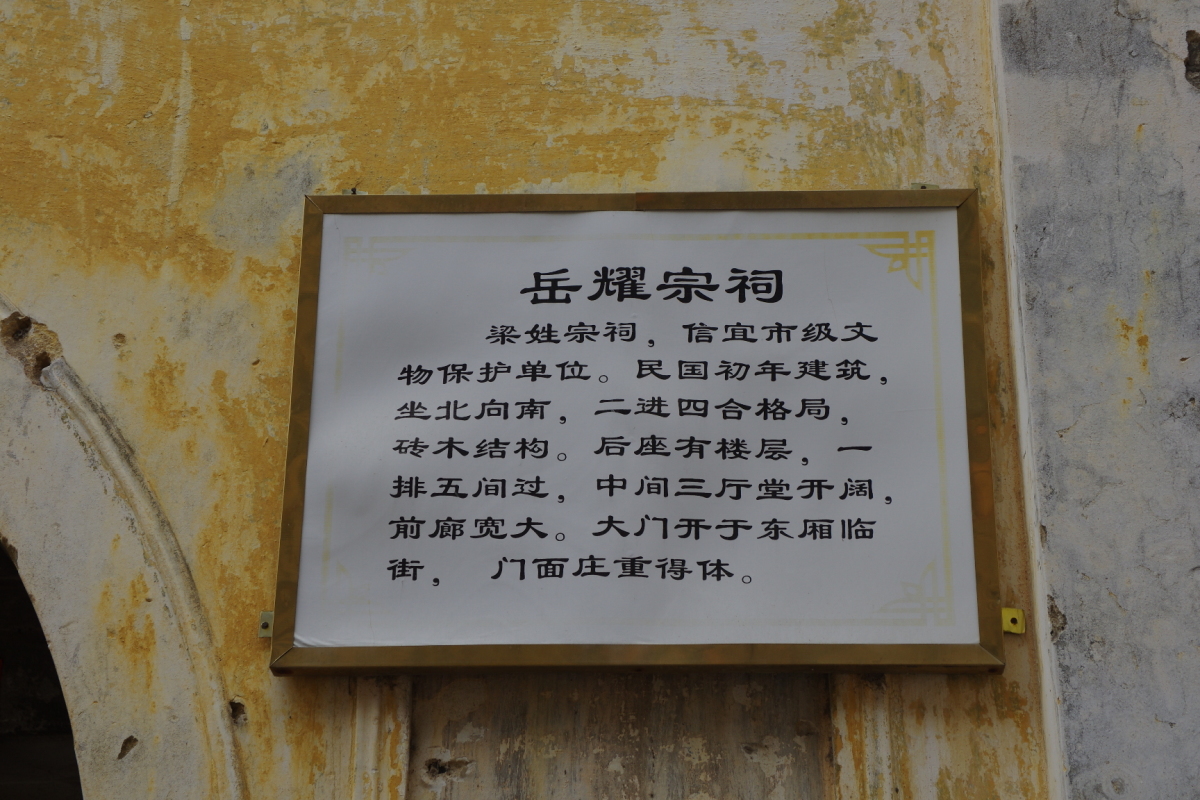 岳耀宗祠
梁姓宗祠，信宜市级文
物保护单位。民国初年建筑，
坐北向南，二进四合格局，
砖木结构。后座有楼层，一
排五间过，中间三厅堂开阔，
前廊宽大。大门开于东厢临
街， 门面庄重得体。